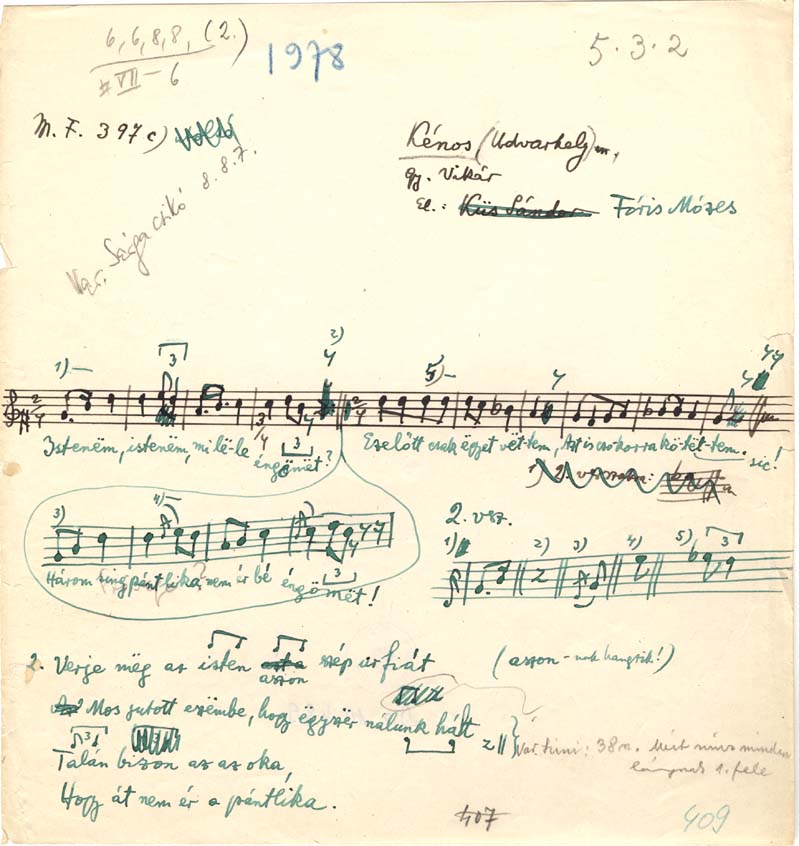 6, 6, 8, 8, (2.)
VII – 6
1978
5.3.2
M. F. 397 c)
Var. Sárga csikó 8.8.7.
Kénos (Udvarhely)
gy. Vikár
El.: Kiis Sándor Fóris Mózes
1) 3 2) 5) 
2/4 3/4 2/4
Istenëm, istenëm, mi lë-le éngömët? Ezelőtt csak ëgyet vët-tem, Azt is csokorra kö-tët-tem. sic!
3) 4)
Három singpántlika nem ér bé éngömët!
2. vsz.
1) 2) 3) 4) 5) 3
2. Verje mëg az isten azson szép úrfiát (azson-nak hangzik!)
Mos jutott eszembe, hogy ëgyszër nálunk hált
Talán bizon az az oka,
Hogy át nem ér a pántlika.
38
lánynak 1. fele
407
409